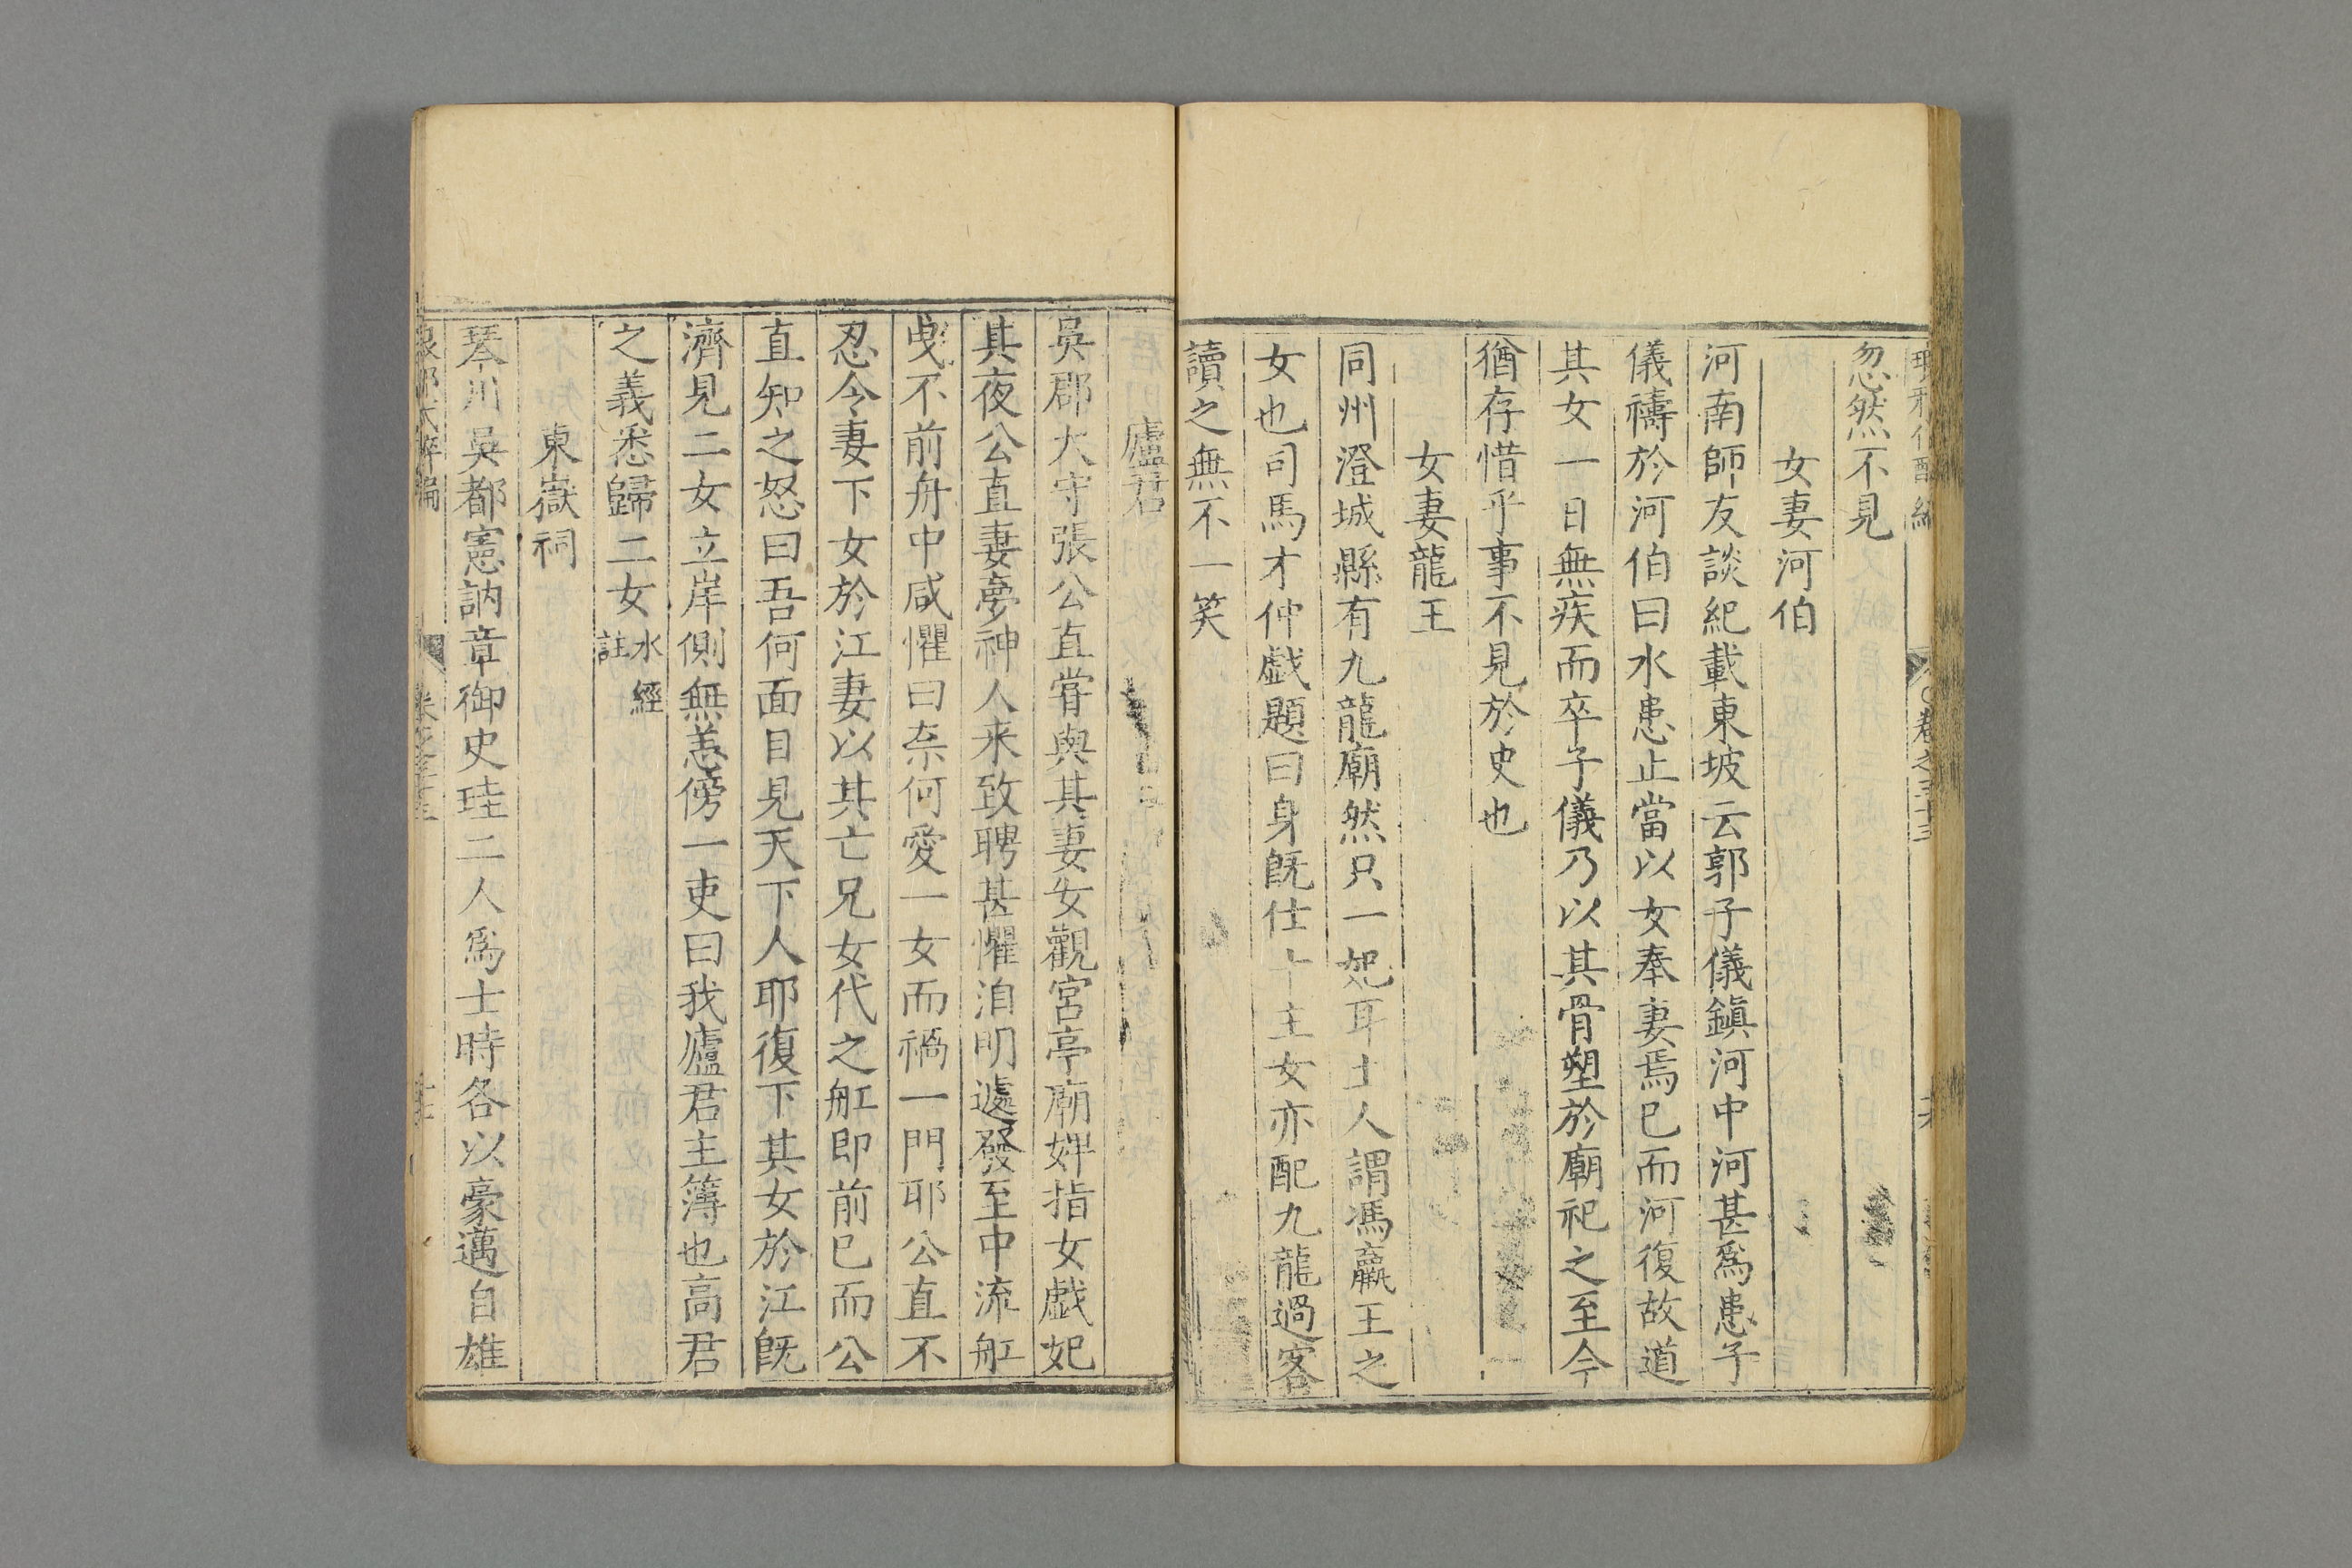 忽然不見
女妻河伯
河南師友談紀載東坡云郭子儀鎮河中河甚爲患子
儀禱於河伯曰水患止當以女奉妻焉已而河復故道
其女一日無疾而卒子儀乃以其骨塑於廟祀之至今
猶存惜乎事不見於史也
女妻龍王
同州澄城縣有九龍廟然只一妃耳土人謂馮瀛王之
女也司馬才仲戯題曰身旣仕十主女亦配九龍過客
讀之無不一笑
廬君
吳郡大守張公直甞與其妻女觀宮亭廟婢指女戯妃
其夜公直妻夢神人来致聘甚懼洎明遽發至中流舡
曵不前舟中咸懼曰奈何愛一女而禍一門耶公直不
忍令妻下女於江妻以其亡兄女代之舡即前已而公
直知之怒曰吾何面目見天下人耶復下其女於江旣
濟見二女立岸側無恙傍一吏曰我廬君主簿也高君
之義悉歸二女水經註
東嶽祠
琴川吳都憲訥章御史珪二人爲士時各以豪邁自雄